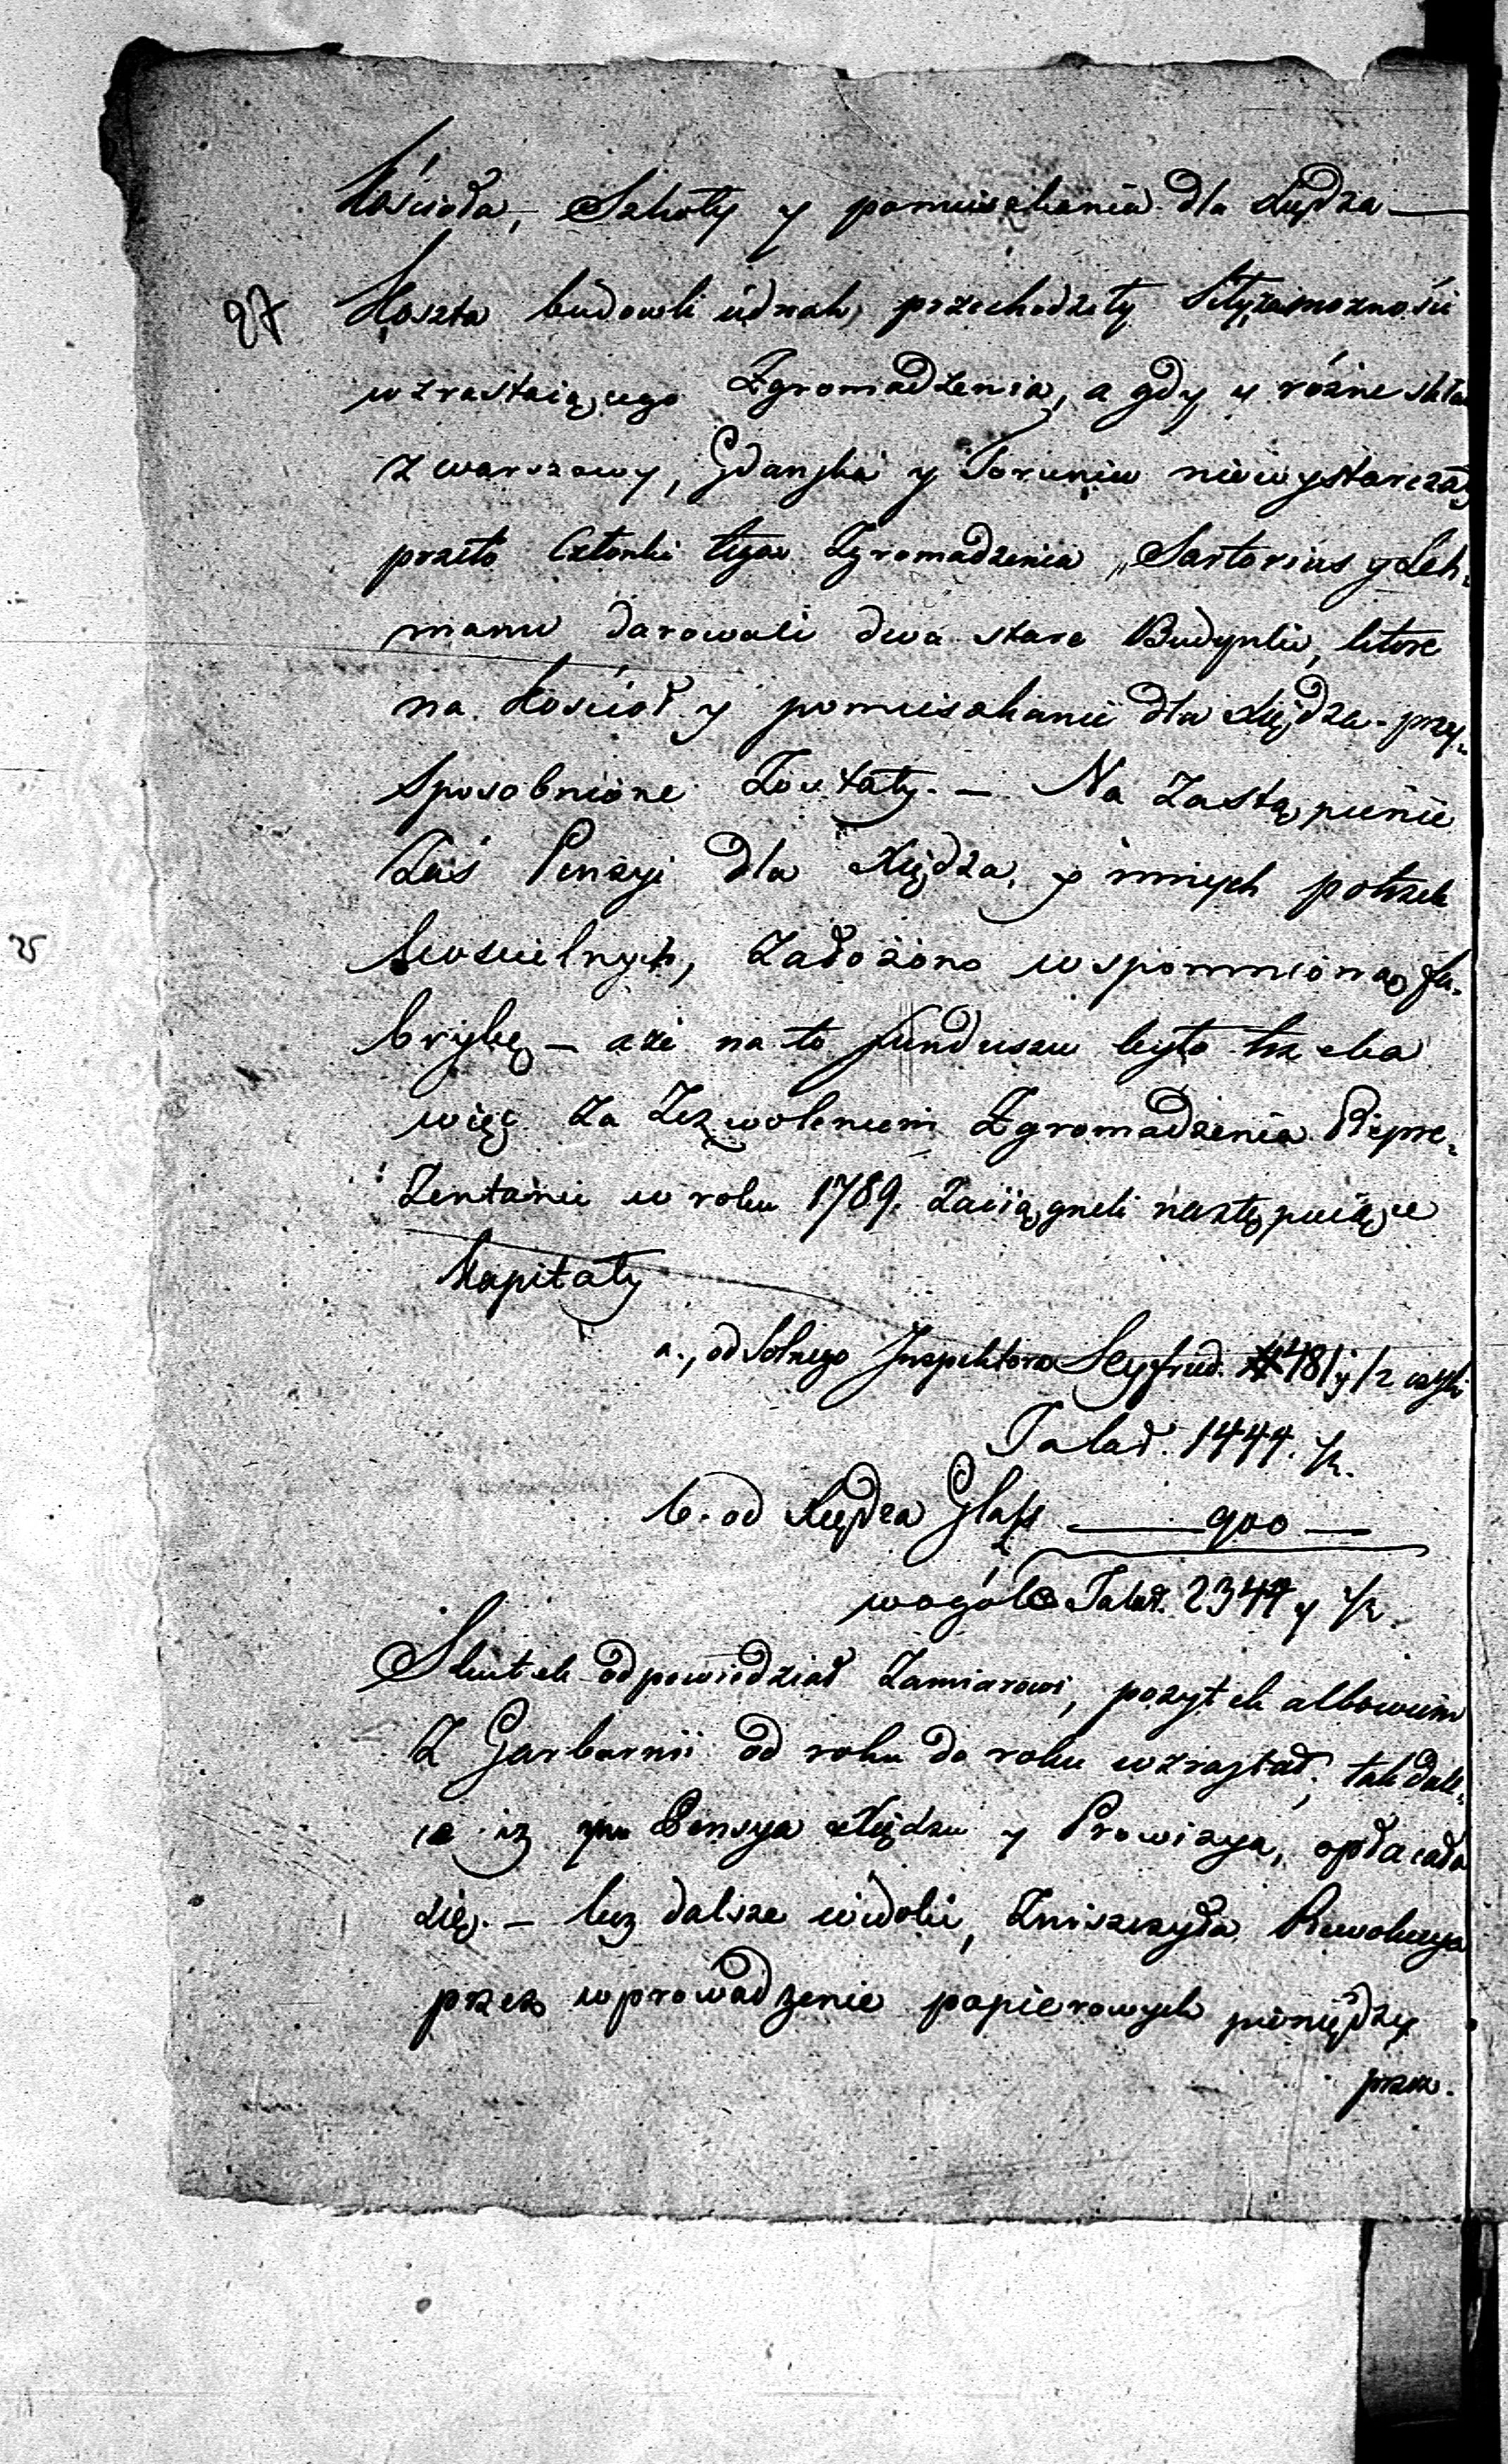 Kościoła, Szkoły y pomieszkania dla Xiędza —
27 Koszta budowli iednak, przechodziły siły zamożności
wzrastaiącego Zgromadzenia, a gdy y różne skła
z warszawy, Gdanska y Toruniu niewystarczały
przeto Członki tego Zgromadzenia, Sartorius y Leh-
mann darowali dwa stare Budynki, ktore
na Kosciół y pomieszkanie dla Xiędza przy-
sposobnione Zostały. — Na Zastąpienie
Zaś Pensyi dla Xiędza, y innych potrzeb
koscielnych, Założono wspomnioną fa-
brykę — aże na to funduszu było trzeba
więc za Zezwoleniem Zgromadzenia Repre-
Zentanci w roku 1789. Zaciągneli następuiące
Kapitały
a., od Solnego Inspektora Seyfried. # 481 y 1/2 czyli
Talar. 1444. 1/2.
b. od Xiędza Glass — 900 —
wogóle Talar. 2344 y 1/2.
Skutek odpowiedział Zamiarowi, pożytek albowiem
Z Garbarnii od roku do roku wzrastał, tak dale-
ce iz Pensya Xiędzu y Prowizya, opłacała
się. — lecz dalsze widoki, Zniszczyła Rewolucya
przez wprowadzenie papierowych pieniędzy
prze-
25